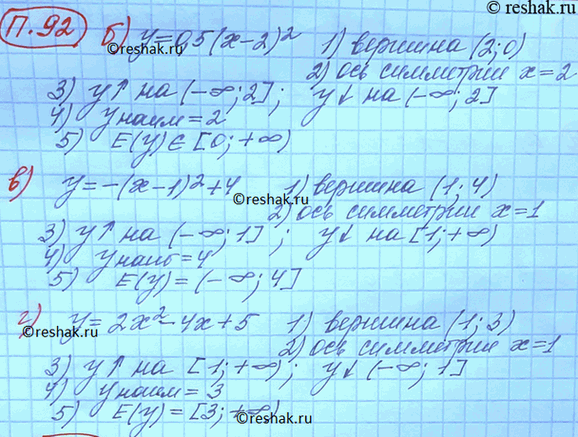 ©reshak.ru
П.92 б) y=0,5(x-2)² 1) вершина (2;0)
2) ось симметрии x=2
3) y↑ на (-∞;2]; y↓ на (-∞;2]
4) yнаим=2
5) E(y)∈[0;+∞)
в) y=-(x-1)²+4 1) вершина (1;4)
©reshak.ru
2) ось симметрии x=1
3) y↑ на (-∞;1]; y↓ на [1;+∞)
4) yнаиб=4
5) E(y)=(-∞;4]
г) y=2x²-4x+5 1) вершина (1;3)
2) ось симметрии x=1
3) y↑ на [1;+∞); y↓ (-∞;1]
4) yнаим=3
5) E(y)=[3;+∞)
©reshak.ru